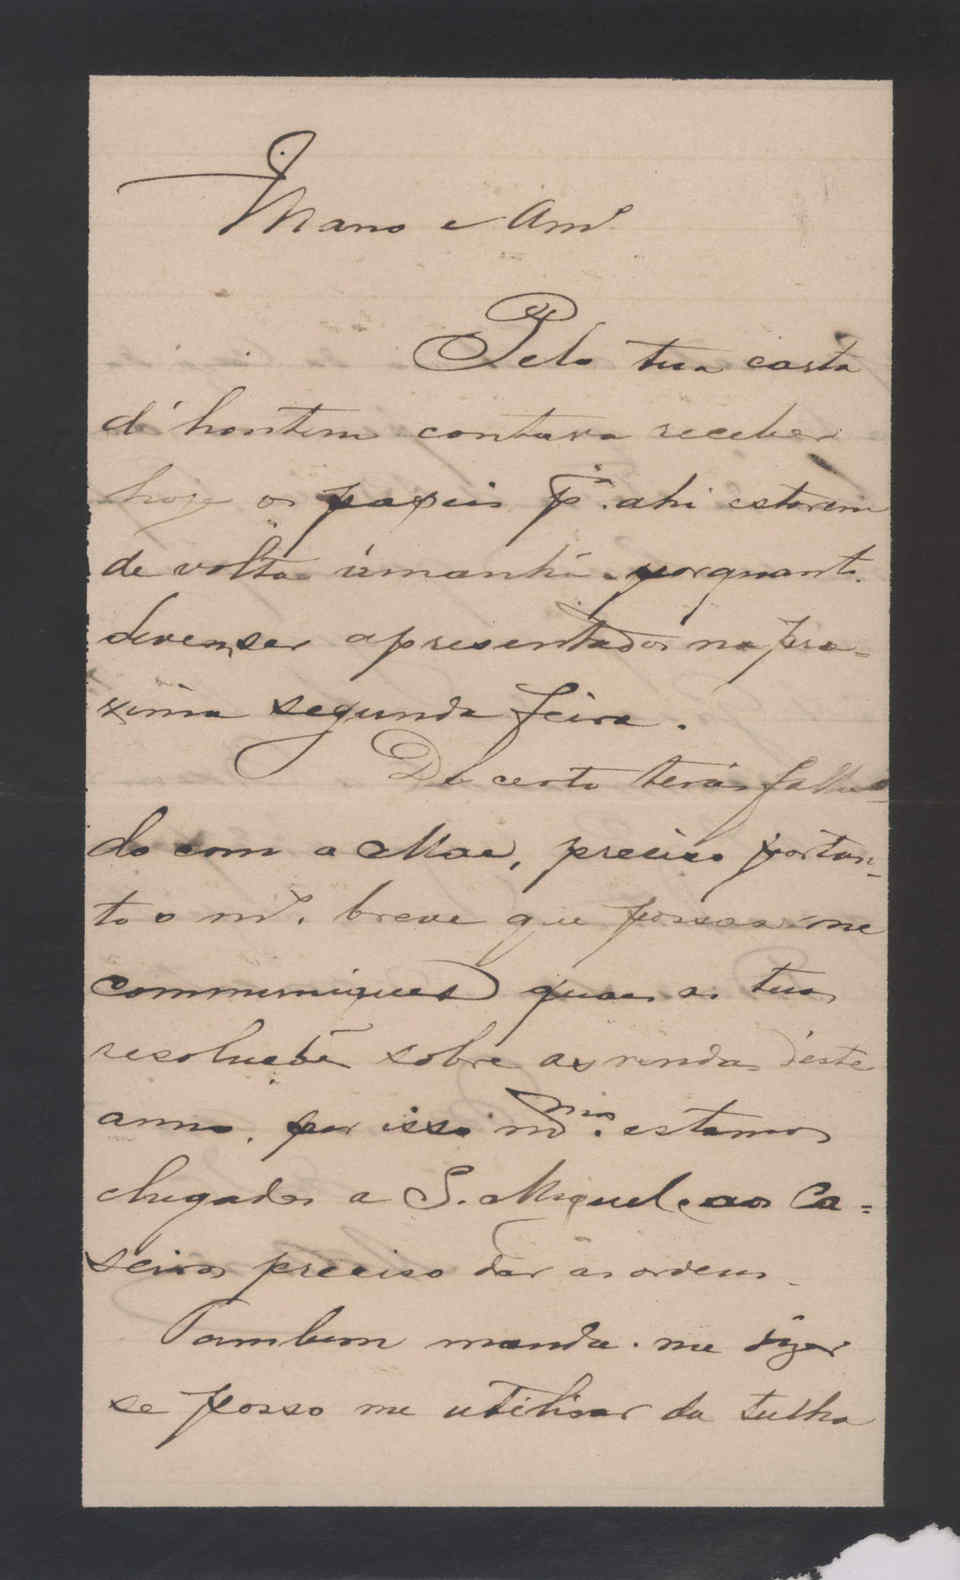 Mano e Amº
Pela tua carta
d'hontem contava receber
hoje os papeis pª. ahi estarem
de volta ámanhã porquanto
devem ser apresentados na pro=
xima segunda feira.
De certo terás falla-
do com a Mãe, preciso portan-
to o mº. breve que possas me
communiques quaes as tuas
resoluções sobre as rendas d'este
anno, por isso estamos
chegados a S. Miguel e aos Ca=
seiros preciso dar as ordens.
Tambem manda-me dizer
se posso me utilisar da tulha